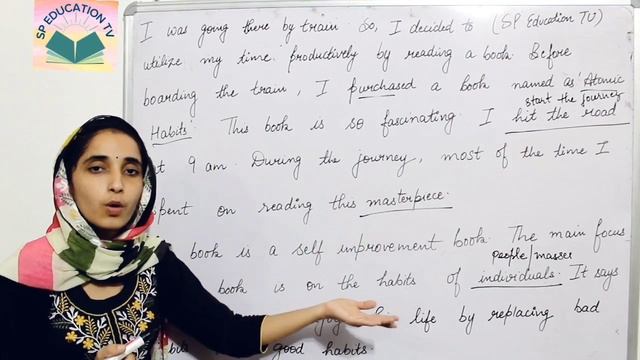 SP EDUCATION TV
I was going there by train. So, I decided to (SP Education TV)
utilize my time productively by reading a book. Before
boarding the train, I purchased a book named as 'Atomic
start the journey
Habits'. This book is so fascinating. I hit the road
at 9 am. During the journey, most of the time I
spent on reading this masterpiece.
book is a self improvement book. The main focus
people/masses
book is on the habits of individuals. It says
life by replacing bad
good habits.